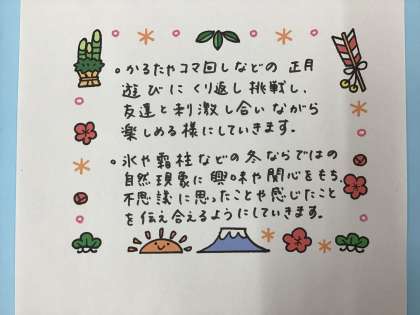 ・かるたやコマ回しなどの 正月
遊びに くり返し 挑戦し、
友達と 刺激し合い ながら
楽しめる様にしていきます。
・氷や 霜柱などの冬ならではの
自然現象に 興味や関心をもち、
不思議に思ったことや感じたこと
を伝え合えるようにしていきます。